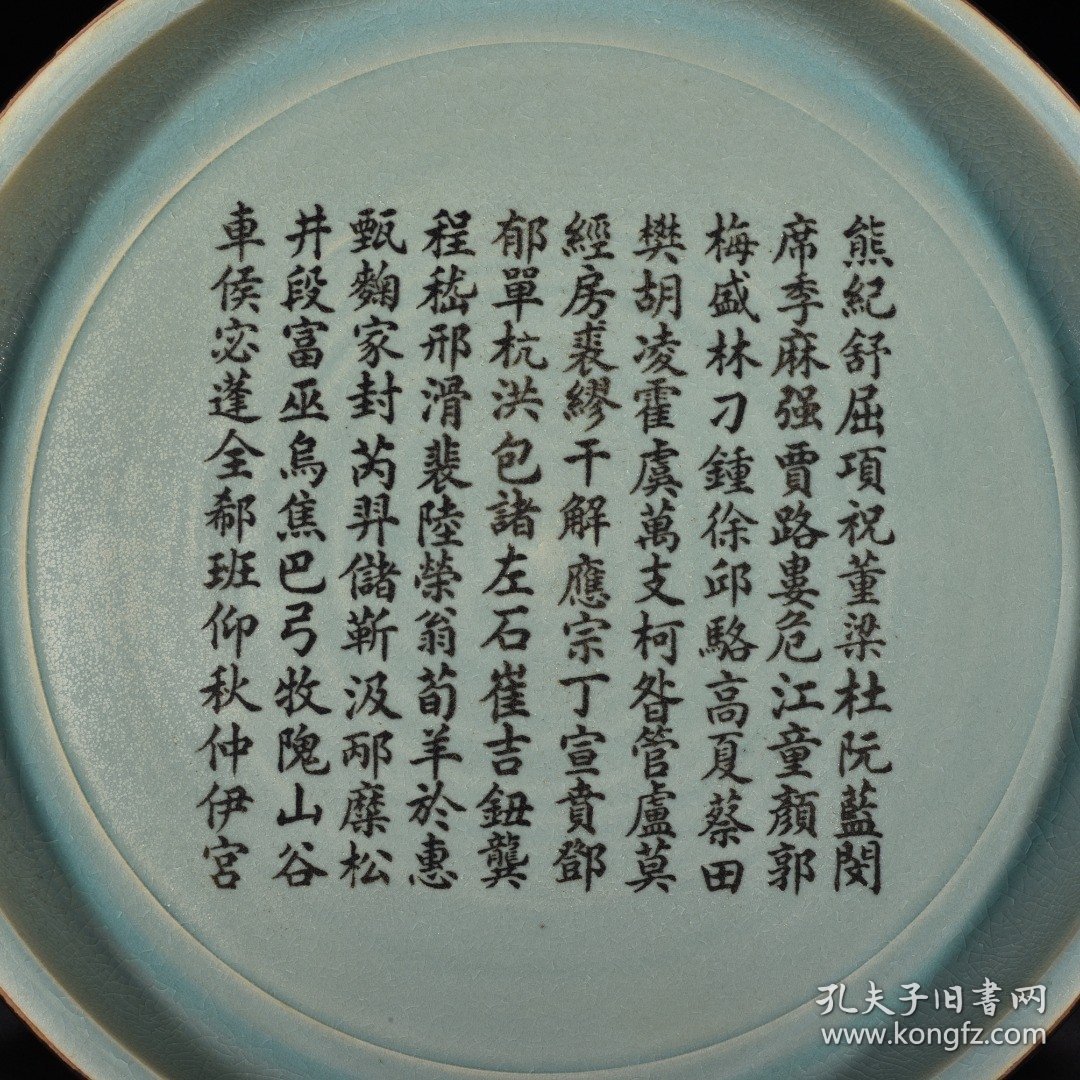 熊紀舒屈項祝董梁杜阮藍閔
席季麻强賈路婁危江童顏郭
梅盛林刁鍾徐邱駱高夏蔡田
樊胡凌霍虞萬支柯昝管盧莫
經房裘繆干解應宗丁宣賁鄧
郁單杭洪包諸左石崔吉鈕龔
程嵇邢滑裴陸榮翁荀羊於惠
甄麴家封芮羿儲靳汲邴糜松
井段富巫烏焦巴弓牧隗山谷
車侯宓蓬全郗班仰秋仲伊宮
孔夫子旧書网
www.kongfz.com